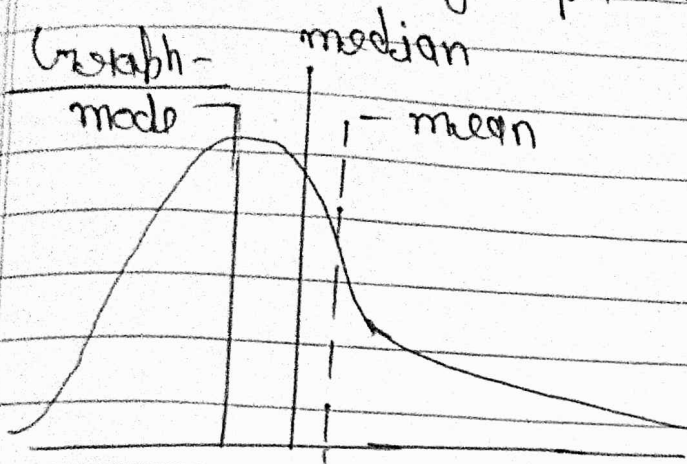 Graph-
median
mode
- mean